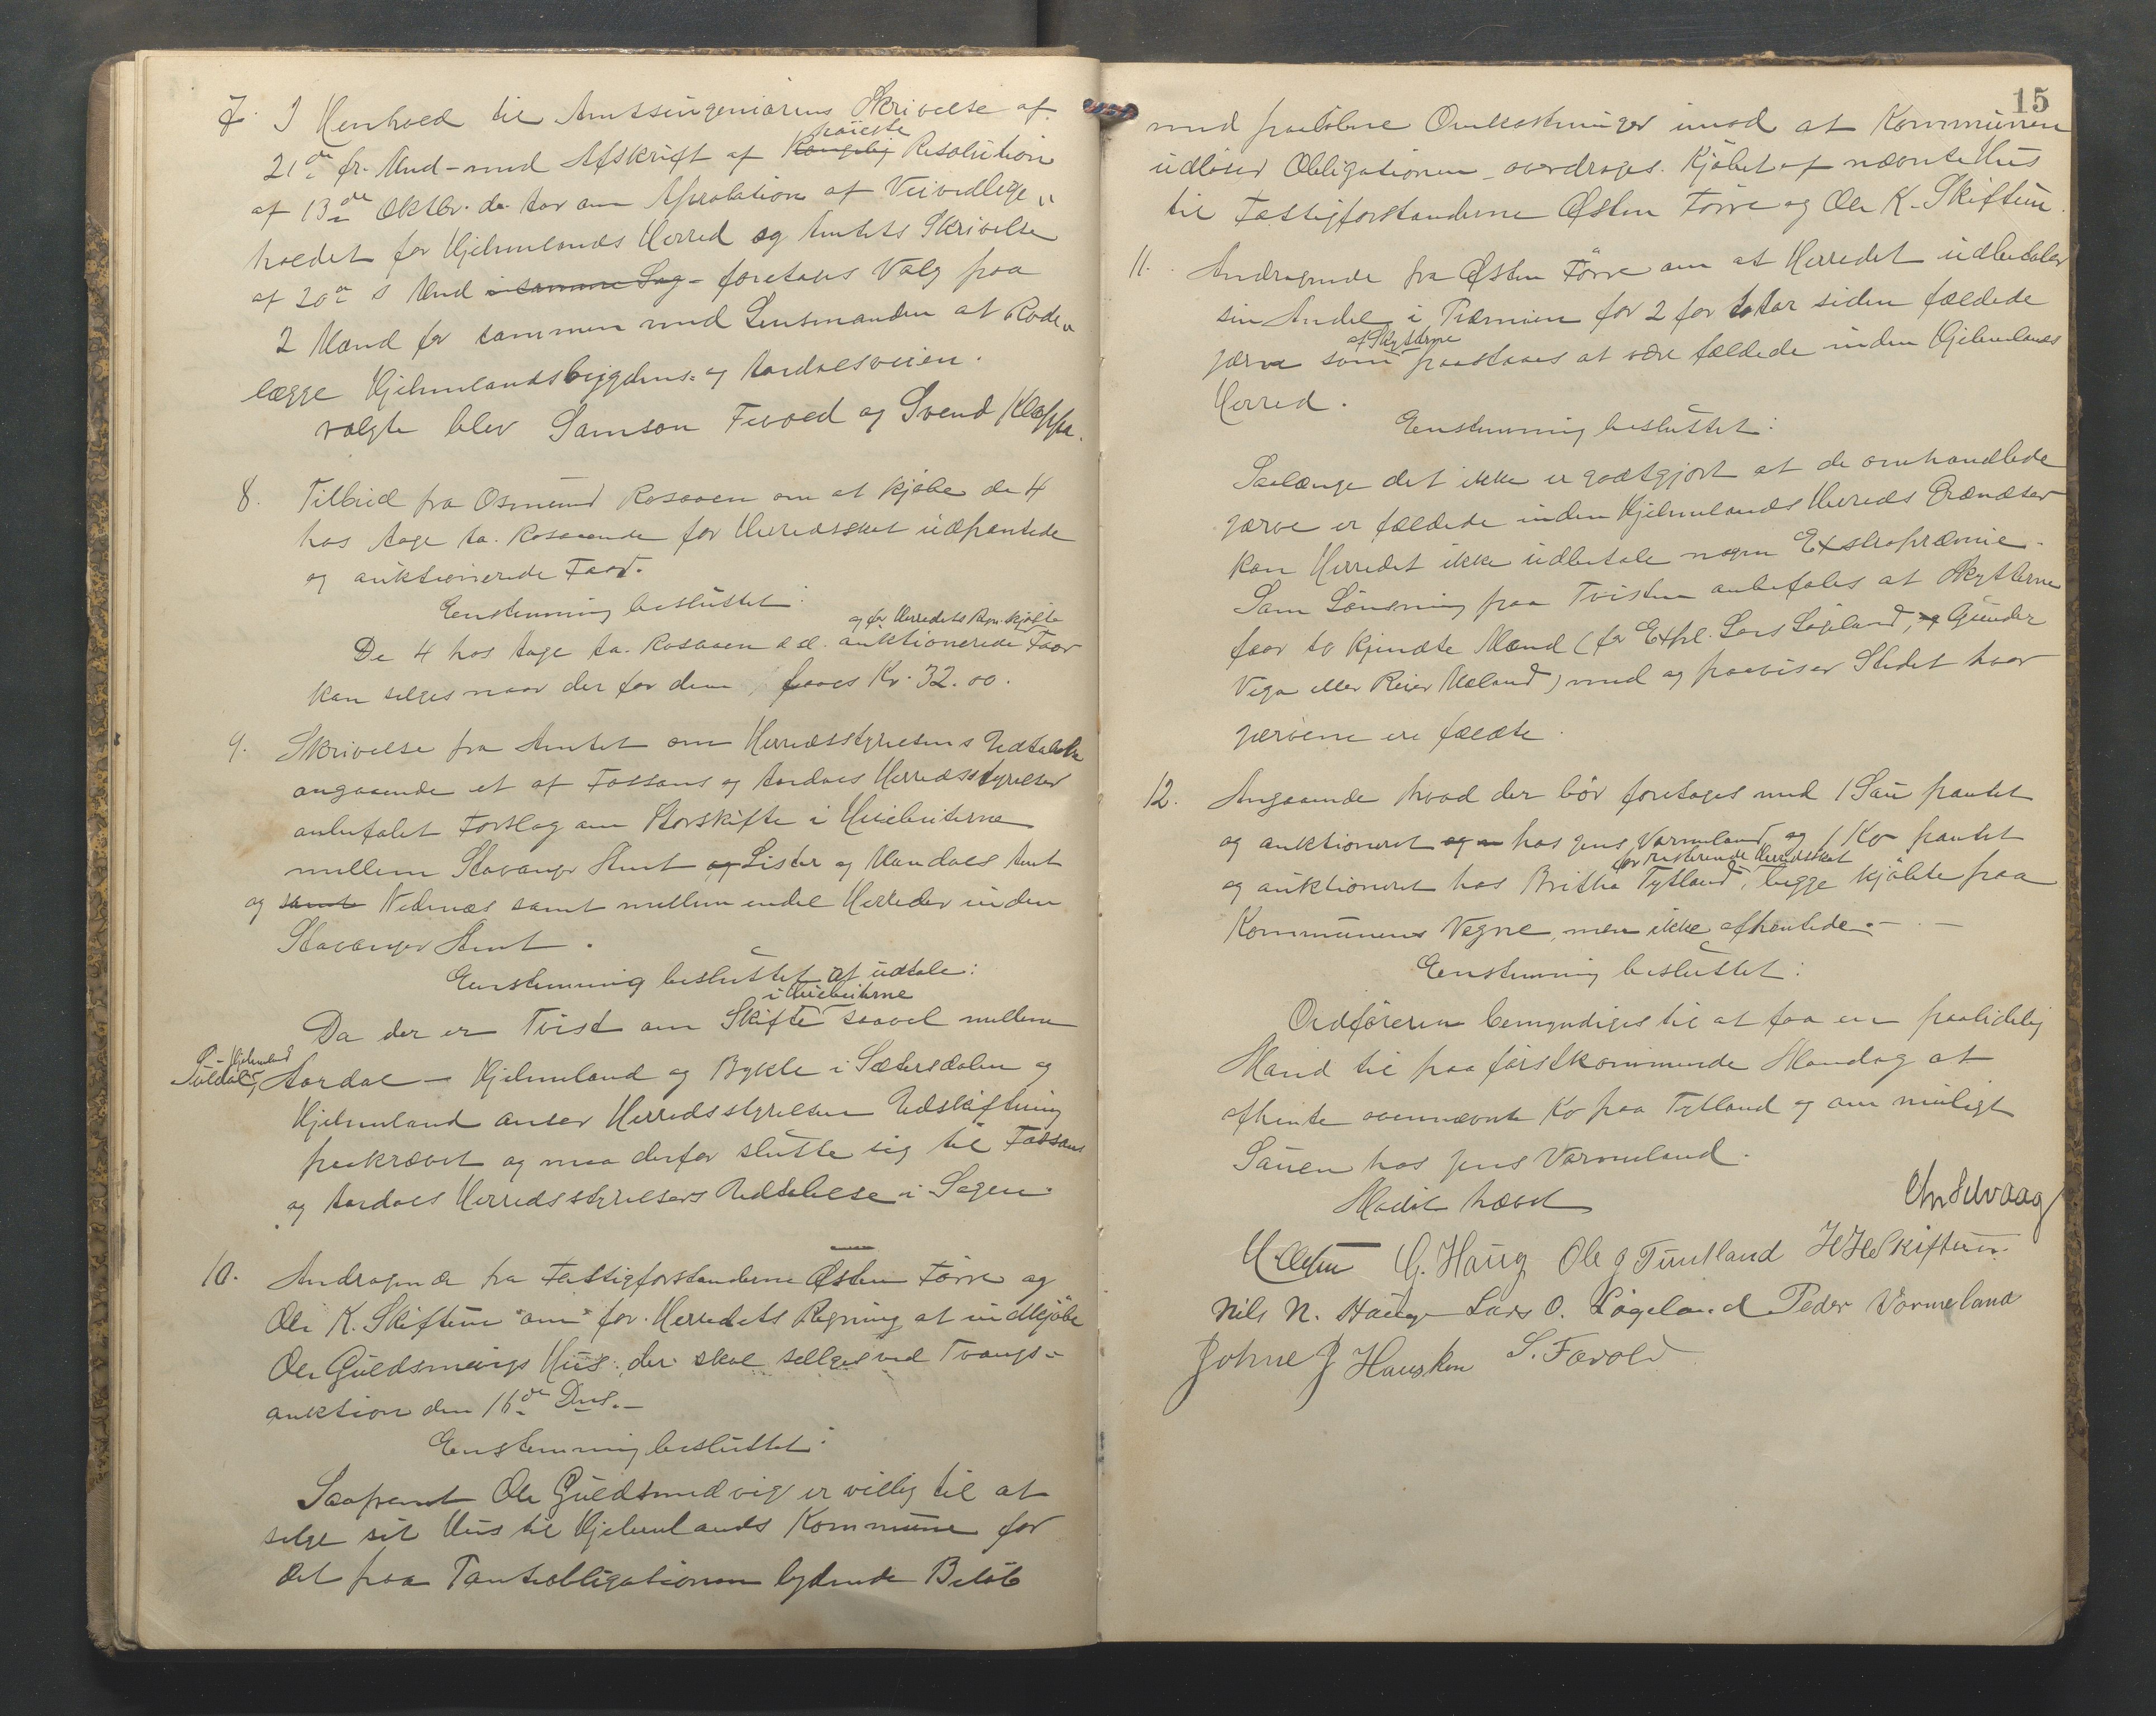 7. I Henhold til Amtsingeniørens Skrivelse af
21de fr. Mnd - med Afskrift af høieste Resolution
af 13de Oktbr. d. Aar om Aprobation af Veivedlige„
holdet for Hjelmelands Herred og Amtets Skrivelse
af 20de s Mnd i samme Sag - foretages Valg paa
2 Mænd for sammen med Lensmanden at Rode„
lægge Hjelmelandsbygdens- og Aardalsveien.
valgte blev Samson Fevold og Svend Kleppa.
8. Tilbud fra Osmund Rosaaen om at kjøbe de 4
hos Aage Aa. Rosaaende for Herredsskat udpantede
og auktionerede Faar.
Eenstemmig besluttet:
og for Herredets Regn. kjøbte
De 4 hos Aage Aa. Rosaaen a.d. auktionerede Faar
kan selges naar der for dem faaes Kr. 32.00.
9. Skrivelse fra Amtet om Herredsstyrelsens Udtalelse
angaaende et af Fossans og Aardals Herredsstyrelser
anbefalet Forslag om Storskifte i Heiebeiterne
mellem Stavanger Amt og Lister og Mandals Amt
og samt Nedenæs samt mellem endel Herreder inden
Stavanger Amt.
Eenstemmig besluttet at udtale:
i Heiebeiterne
Da der er Tvist om Skifte saavel mellem
- Hjelmeland
Suldal og Aardal - Hjelmeland og Bykle i Sætersdalen og
Hjelmeland anser Herredsstyrelsen Udskiftning
paakrævet og maa derfor slutte sig til Fossans
og Aardals Herredsstyrelsers Udtalelse i Sagen.
10. Andragende fra Fattigforstanderne Østen Førre og
Ole K. Skiftun om for Herredets Regning at indkjøbe
Ole Guldsmevigs Hus, der skal selges ved Tvangs-
auktion den 16de Ds.-
Eenstemmig besluttet:
Saafremt Ole Guldsmedvig er villig til at
selge sit Hus til Hjelmelands Kommune for
det paa Panteobligationen lydende Beløb
15
med paaløbne Omkostninger imod at Kommunen
udløser Obligationen overdrages Kjøbet af nævnte Hus
til Fattigforstanderne Østen Førre og Ole K. Skiftun.
11. Andragende fra Østen Førre om at Herredet udbetaler
sin Andel i Præmien for 2 for to Aar siden fældede
af Skytterne
Jærve som paastaaes at være fældede inden Hjelmelands
Herred.
Eenstemmig besluttet:
Saalænge det ikke er godtgjort at de omhandlede
Jærve er fældede inden Hjelmelands Herreds Grændser
kan Herredet ikke udbetale nogen Extrapræmie.
Som Løsning paa Tvisten anbefales at Skytterne
faar to kjendte Mænd (for Expl. Lars Løgeland, og Gunder
Vega eller Reier Mæland) med og paaviser Stedet hvor
Jærvene ere fældte.
12. Angaaende hvad der bør foretages med 1 Sau pantet
og auktioneret hos Jens Vormeland og 1 Ko pantet
for resterende Herredsskat
og auktioneret hos Britha Tytland, begge kjøbte paa
Kommunens Vegne, men ikke afhentede.-
Eenstemmig besluttet:
Ordføreren bemyndiges til at faa en paalidelig
Mand til paa førstkommende Mandag at
afhente ovennævnte Ko paa Tytland og om muligt
Sauen hos Jens Vormeland.
Mødet hævet
G. Haug Ole J Tuntland Skiftun
Nils N. Hauge Lars O. Løgeland Peder Vormeland
Johne J Hausken S. Fævold